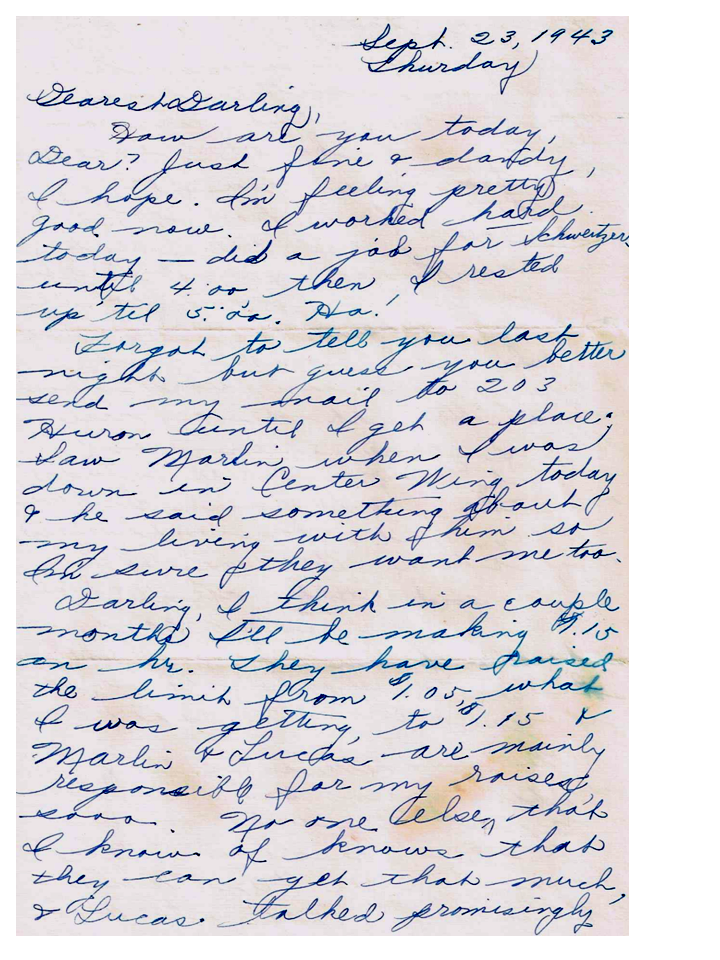 Sept. 23, 1943
Thurday
Dearest Darling,
How are you today,
Dear? Just fine & dandy,
I hope. I'm feeling pretty
good now. I worked hard
today — did a job for Schweitzer
until 4:00, then I rested
up 'til 5:00. Ha!
Forgot to tell you last
night but guess you better
send my mail to 203
Huron until I get a place;
Saw Marlin, when I was
down in Center Wing today
& he said something about
my living with them so
I'm sure they want me too.
Darling, I think in a couple
months I'll be making $1.15
an hr. They have raised
the limit from $1.05, what
I was getting, to $1.15 &
Marlin & Lucas are mainly
responsible for my raises,
sooo. No one else, that
I know of knows that
they can get that much,
& Lucas talked promisingly